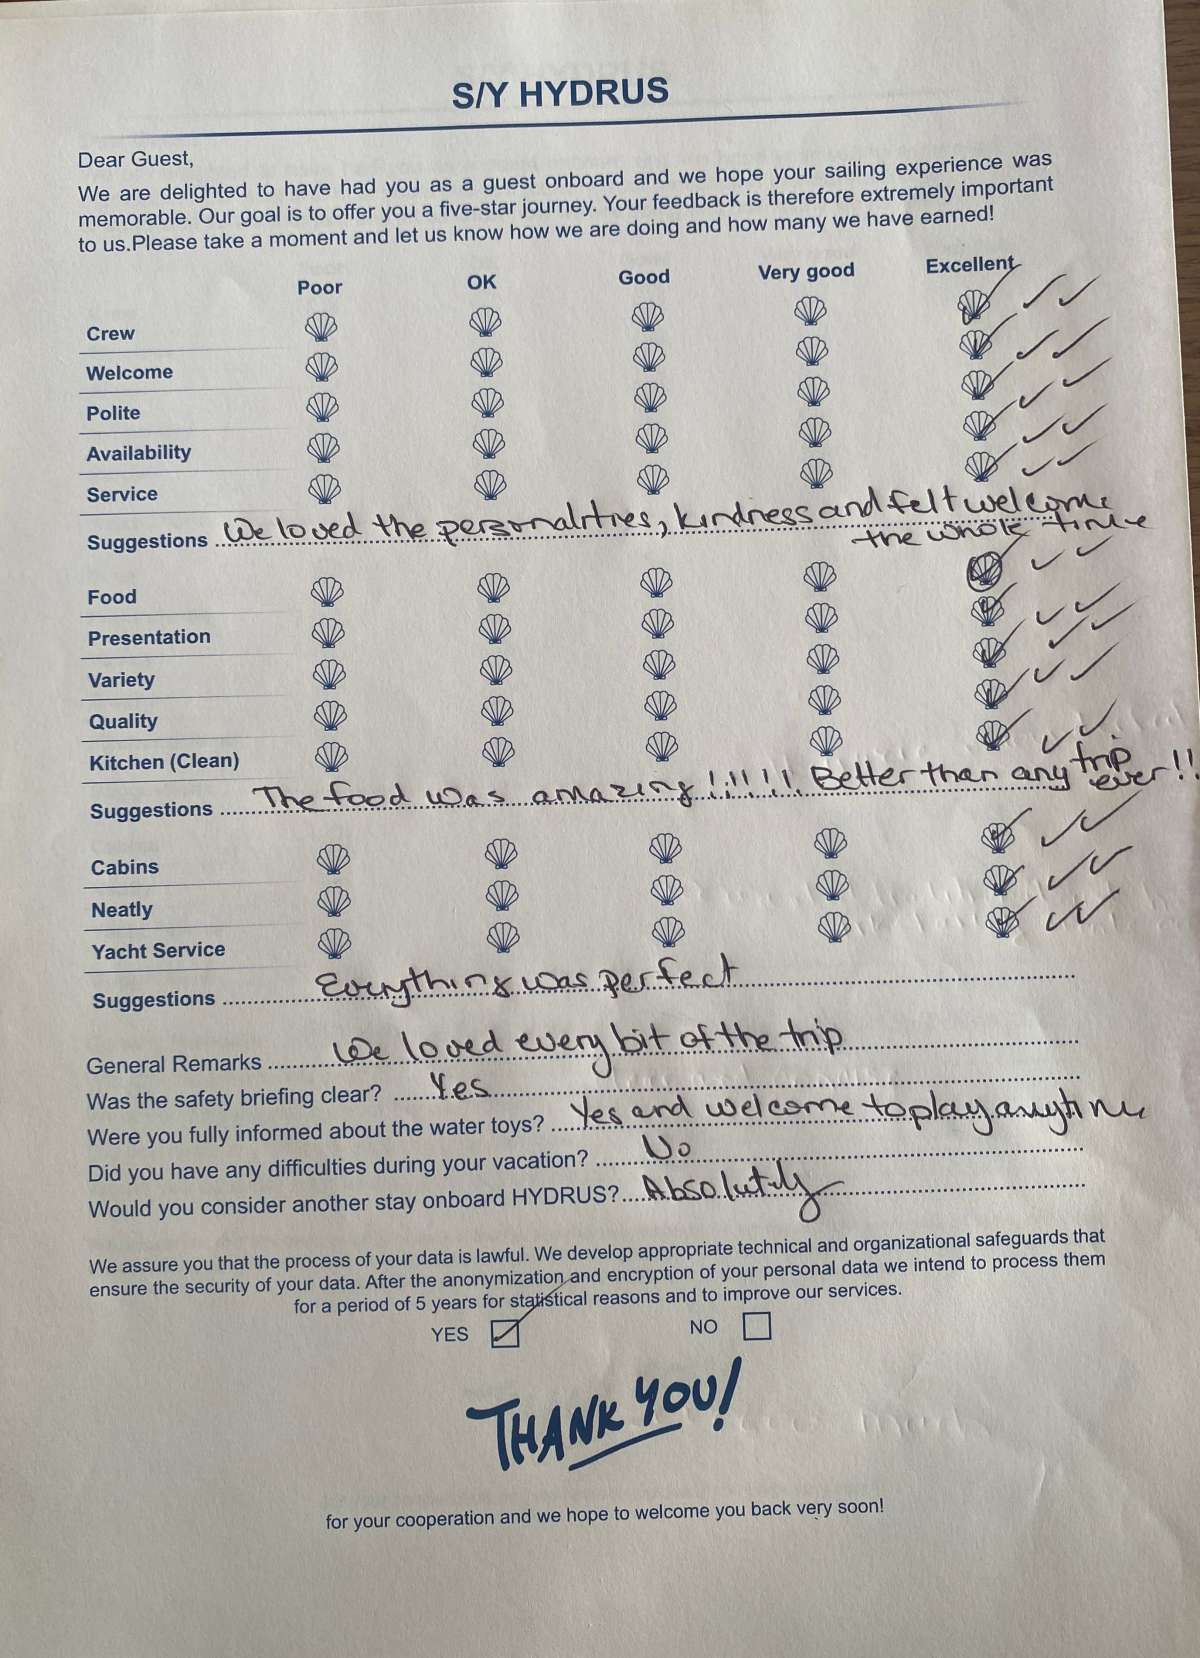 S/Y HYDRUS
Dear Guest,
We are delighted to have had you as a guest onboard and we hope your sailing experience was
memorable. Our goal is to offer you a five-star journey. Your feedback is therefore extremely important
to us.Please take a moment and let us know how we are doing and how many we have earned!
Poor OK Good Very good Excellent
Crew
Welcome
Polite
Availability
Service
Suggestions We loved the personalities, kindness and felt welcome
the whole time
Food
Presentation
Variety
Quality
Kitchen (Clean)
Suggestions The food was amazing!!!!!! Better than any trip
ever!!
Cabins
Neatly
Yacht Service
Suggestions Everything was perfect
General Remarks We loved every bit of the trip
Was the safety briefing clear? Yes
Were you fully informed about the water toys? Yes and welcome to play anytime
Did you have any difficulties during your vacation? No
Would you consider another stay onboard HYDRUS? Absolutely
We assure you that the process of your data is lawful. We develop appropriate technical and organizational safeguards that
ensure the security of your data. After the anonymization and encryption of your personal data we intend to process them
for a period of 5 years for statistical reasons and to improve our services.
YES NO
THANK YOU!
for your cooperation and we hope to welcome you back very soon!